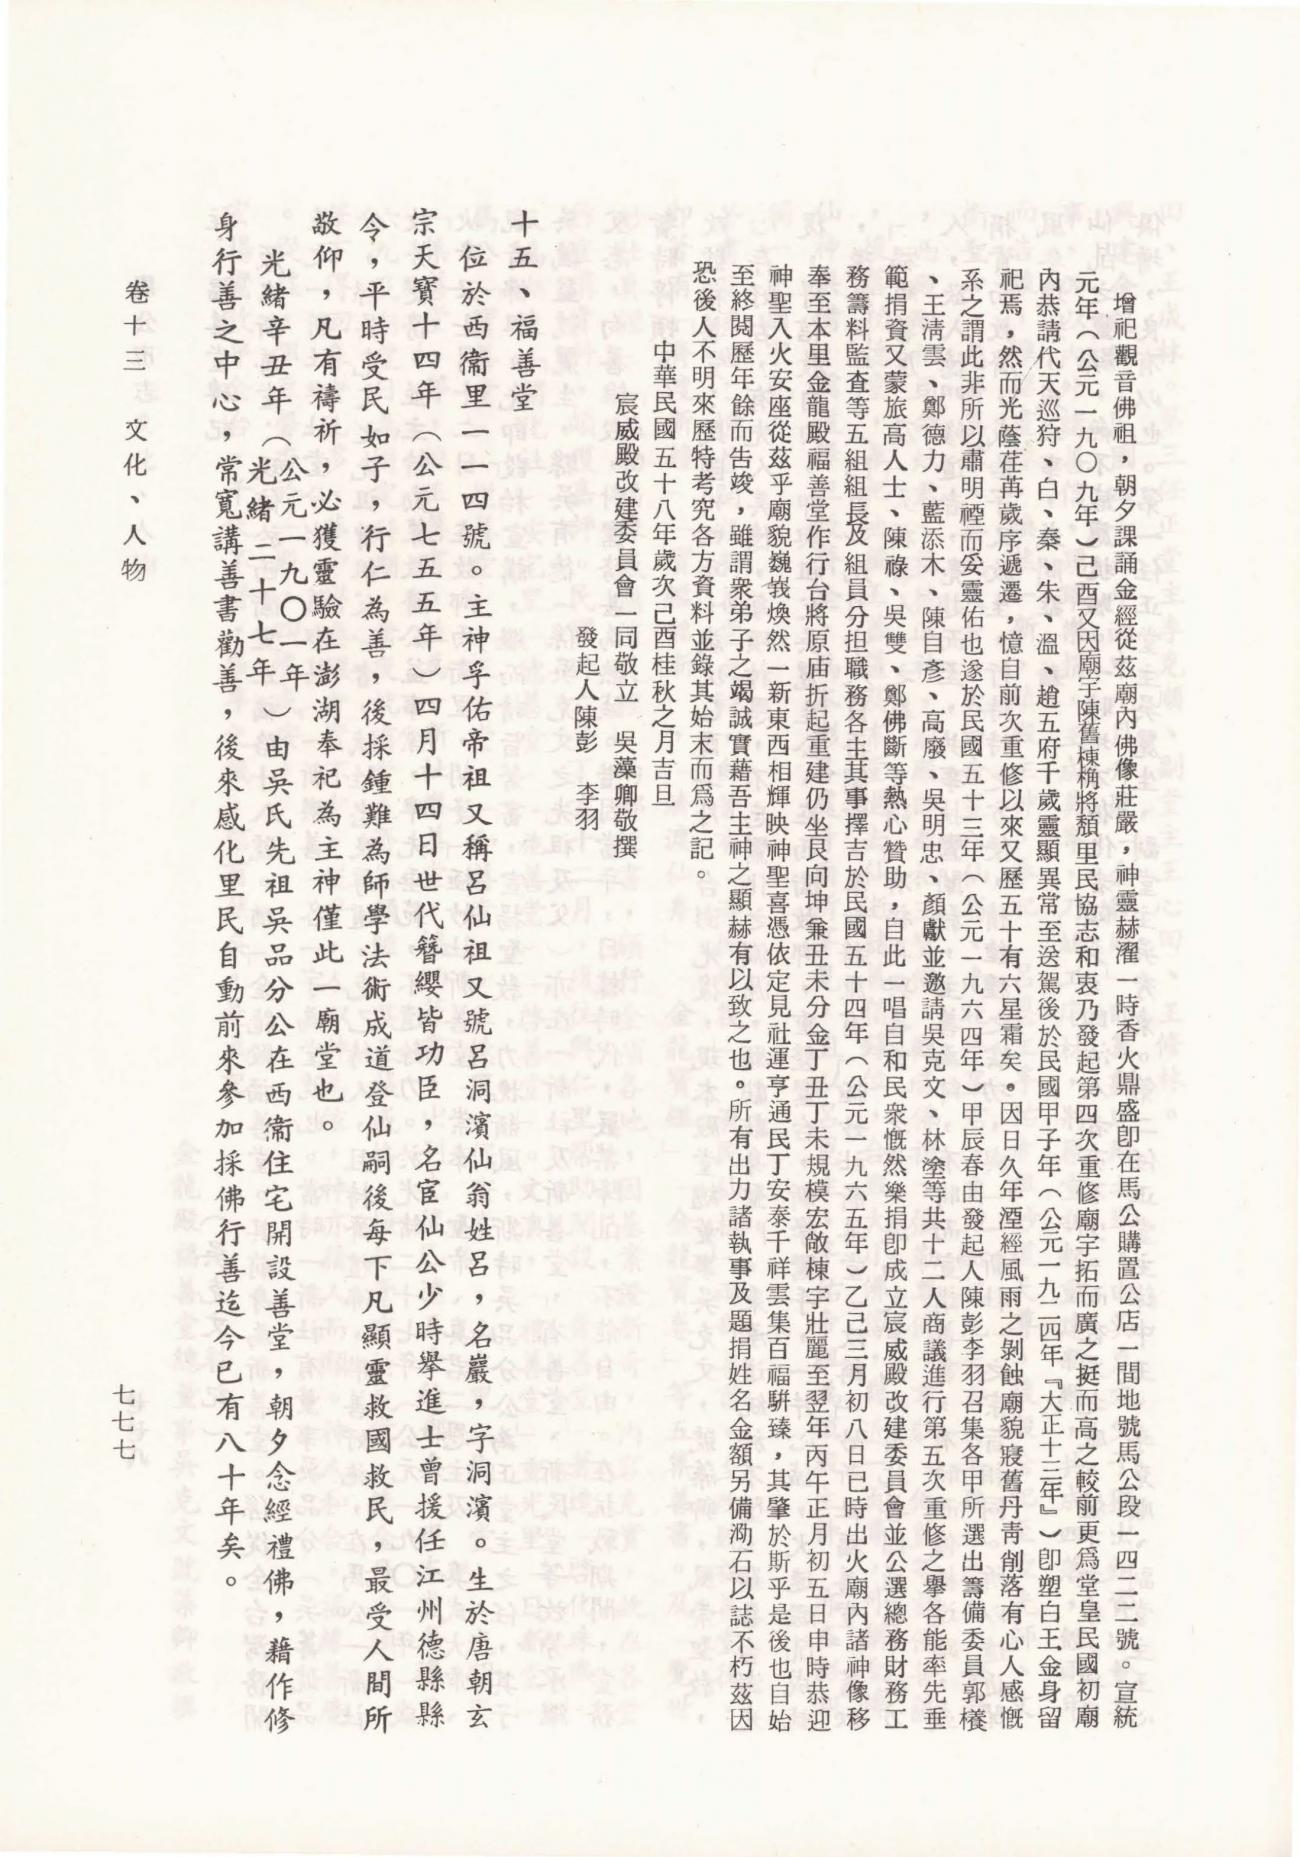 增祀觀音佛祖，朝夕課誦金經從茲廟內佛像莊嚴，神靈赫濯一時香火鼎盛卽在馬公購置公店一間地號馬公段一四二二號。宣統
元年（公元一九〇九年）己酉又因廟宇陳舊棟桷將頹里民協志和衷乃發起第四次重修廟宇拓而廣之挺而高之較前更爲堂皇民國初廟
內恭請代天巡狩、白、秦、朱、溫、趙五府千歲靈顯異常至送駕後於民國甲子年（公元一九二四年『大正十三年』）卽塑白王金身留
祀焉，然而光蔭荏苒歲序遞遷，憶自前次重修以來又歷五十有六星霜矣。因日久年湮經風雨之剝蝕廟貌寢舊丹靑削落有心人感慨
系之謂此非所以肅明禋而妥靈佑也遂於民國五十三年（公元一九六四年）甲辰春由發起人陳彭李羽召集各甲所選出籌備委員郭權
、王淸雲、鄭德力、藍添木、陳自彥、高廢、吳明忠、顏獻並邀請吳克文、林塗等共十二人商議進行第五次重修之舉各能率先垂
範捐資又蒙旅高人士、陳祿、吳雙、鄭佛斷等熱心贊助，自此一唱自和民衆慨然樂捐卽成立宸威殿改建委員會並公選總務財務工
務籌料監查等五組組長及組員分担職務各主其事擇吉於民國五十四年（公元一九六五年）乙己三月初八日巳時出火廟內諸神像移
奉至本里金龍殿福善堂作行台將原庙折起重建仍坐艮向坤兼丑未分金丁丑丁未規模宏敞棟宇壯麗至翌年丙午正月初五日申時恭迎
神聖入火安座從茲乎廟貌巍峩煥然一新東西相輝映神聖喜憑依定見社運亨通民丁安泰千祥雲集百福駢臻，其肇於斯乎是後也自始
至終閱歷年餘而告竣，雖謂衆弟子之竭誠實藉吾主神之顯赫有以致之也。所有出力諸執事及題捐姓名金額另備泐石以誌不朽茲因
恐後人不明來歷特考究各方資料並錄其始末而爲之記。
中華民國五十八年歲次己酉桂秋之月吉旦
宸威殿改建委員會一同敬立　吳藻卿敬撰
發起人陳彭　李羽
十五、福善堂
位於西衞里一一四號。主神孚佑帝祖又稱呂仙祖又號呂洞濱仙翁姓呂，名巖，字洞濱。生於唐朝玄
宗天寳十四年（公元七五五年）四月十四日世代簪纓皆功臣，名宦仙公少時舉進士曾援任江州德縣縣
令，平時受民如子，行仁為善，後採鍾難為師學法術成道登仙嗣後每下凡顯靈救國救民，最受人間所
敬仰，凡有禱祈，必獲靈驗在澎湖奉祀為主神僅此一廟堂也。
光緒辛丑年（公元一九〇一年光緒二十七年）由吳氏先祖吳品分公在西衞住宅開設善堂，朝夕念經禮佛，藉作修
身行善之中心，常寬講善書勸善，後來感化里民自動前來參加採佛行善迄今已有八十年矣。
卷十三　文化、人物
七七七